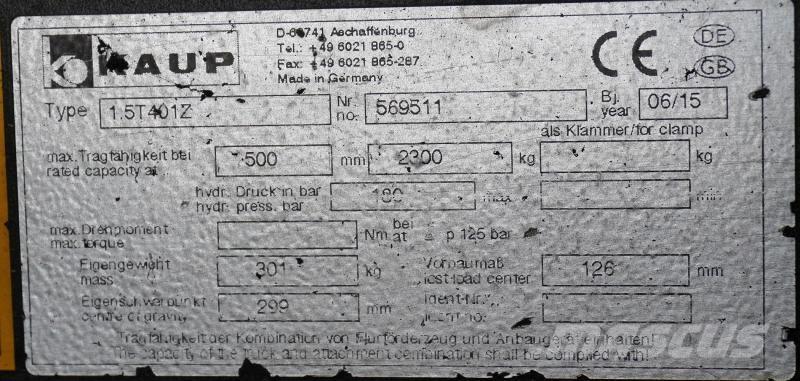 KAUP
D-63741 Aschaffenburg
Tel.: +49 6021 865-0
Fax: +49 6021 865-287
Made in Germany
CE
DE
GB
Type 1.5T401Z
Nr. no. 569511
Bj. year 06/15
als Klammer/for clamp
max. Tragfähigkeit bei
rated capacity at 500 mm 2300 kg kg
hydr. Druck in bar
hydr. press. bar 180 max min
max. Drehmoment
max. torque Nm bei at △ p 125 bar
Eigengewicht
mass 301 kg
Vorbaumaß
lost load center 126 mm
Eigenschwerpunkt
centre of gravity 299 mm
Ident-Nr.
ident no:
Tragfähigkeit der Kombination von Flurförderzeug und Anbaugerät einhalten!
The capacity of the truck and attachment combination shall be complied with!